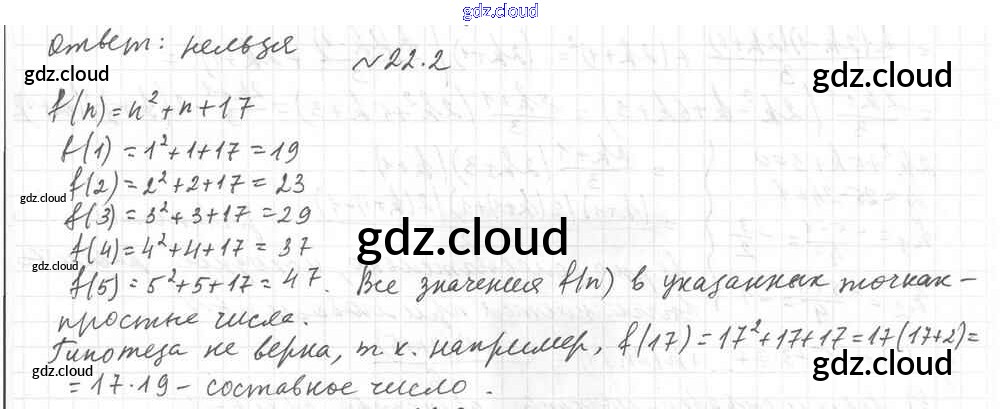 gdz.cloud
Ответ: нельзя
№22.2
gdz.cloud
gdz.cloud
f(n)=n²+n+17
f(1)=1²+1+17=19
f(2)=2²+2+17=23
gdz.cloud
f(3)=3²+3+17=29
gdz.cloud
f(4)=4²+4+17=37
gdz.cloud
f(5)=5²+5+17=47. Все значения f(n) в указанных точках-
простые числа.
Гипотеза не верна, т.к. например, f(17)=17²+17+17=17(17+2)=
gdz.cloud
gdz.cloud
=17·19-составное число.